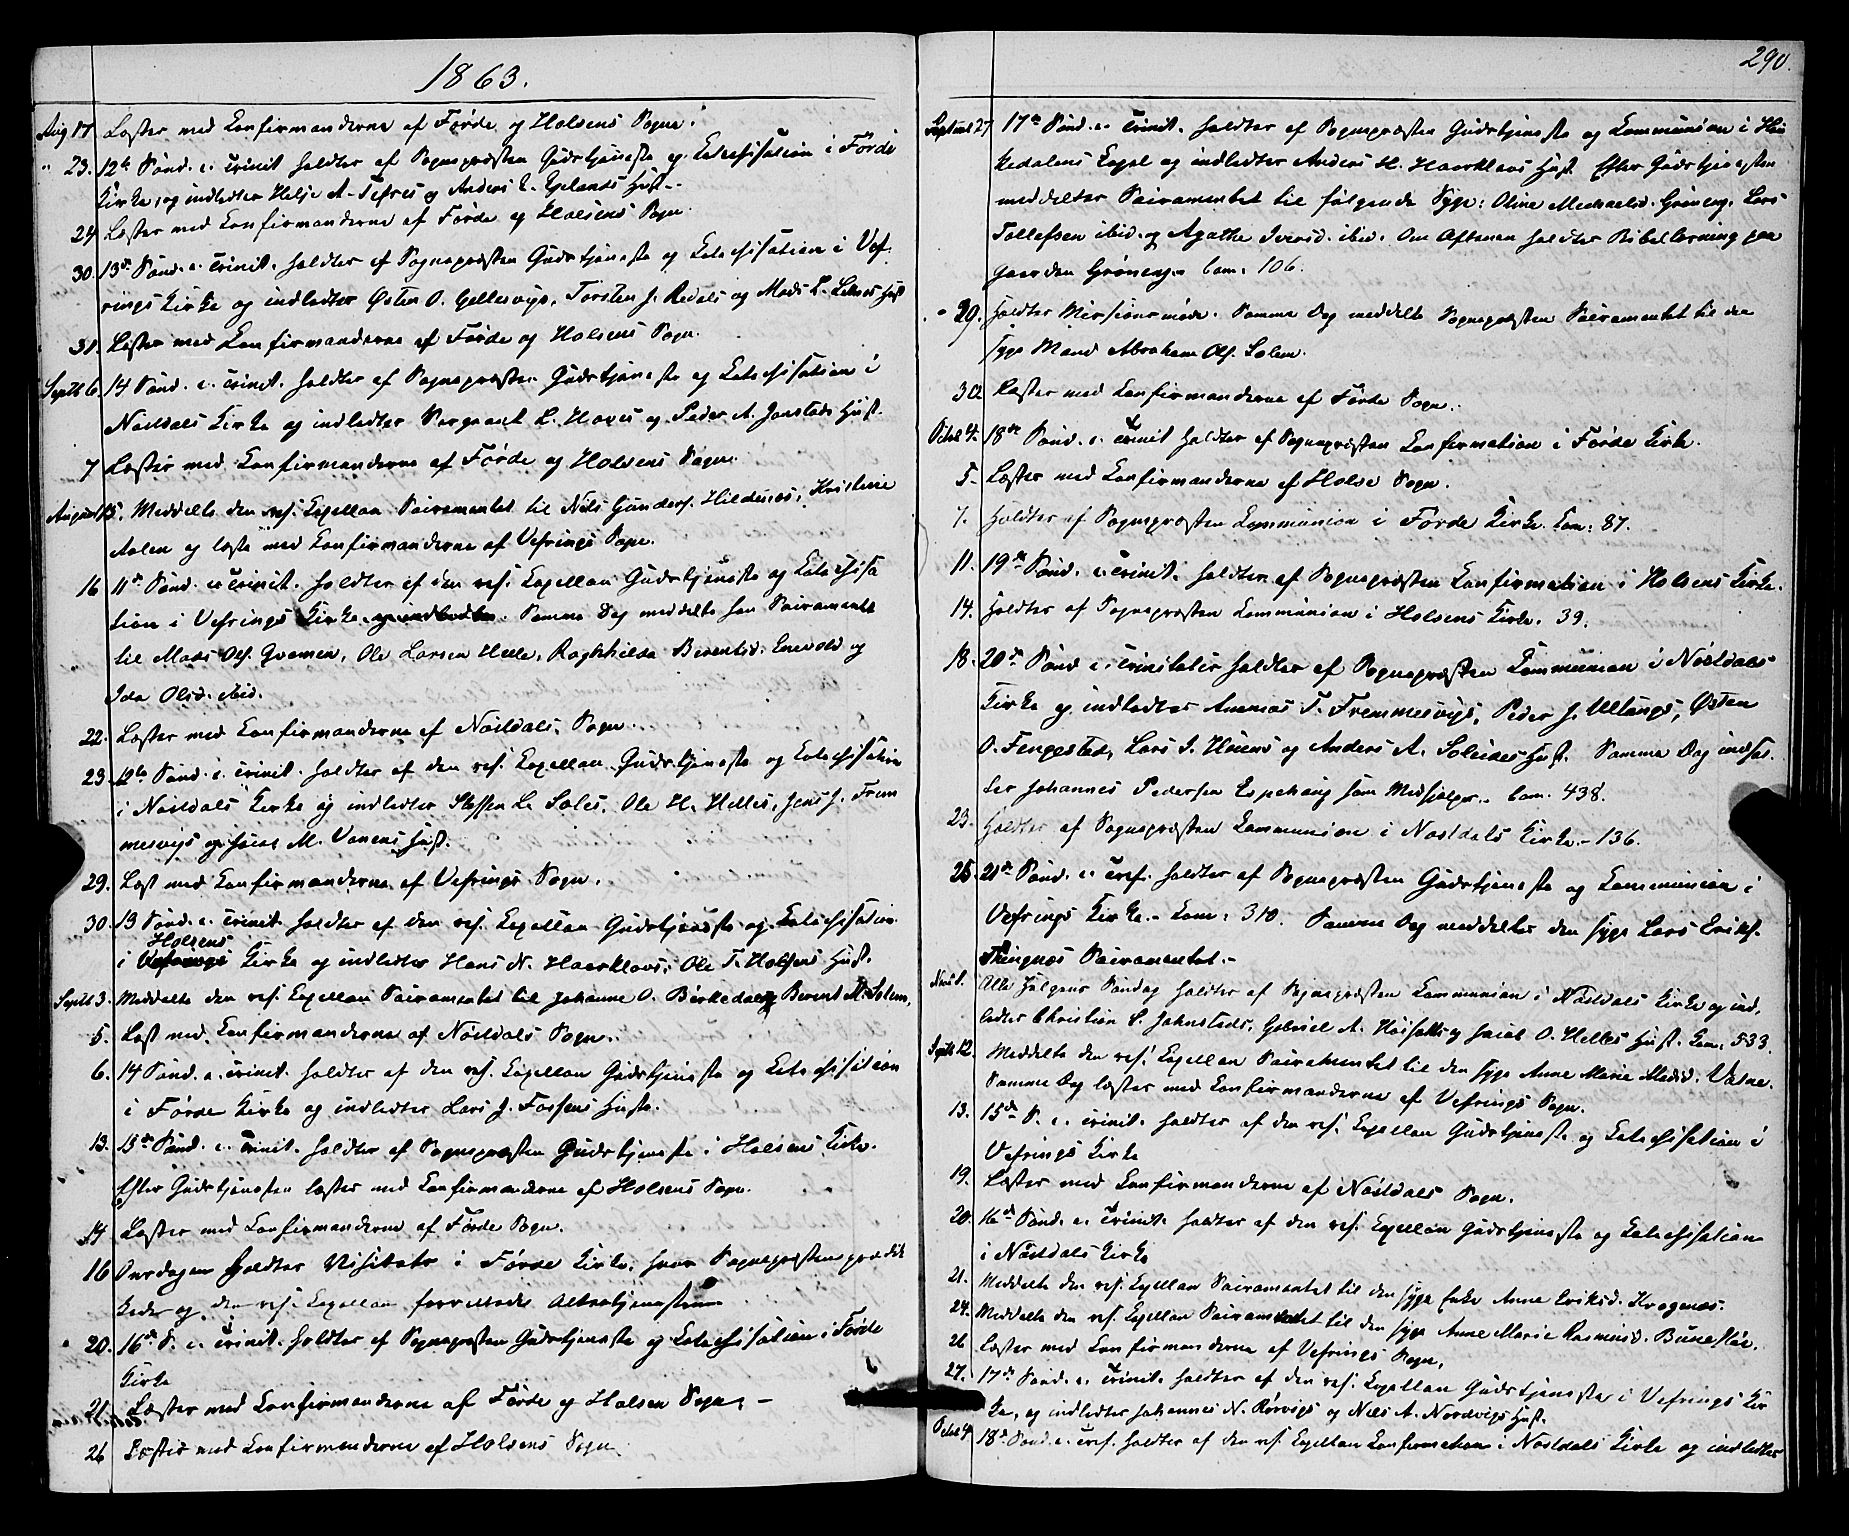 1863.
Aug 17 Læstes med Konfirmanderne af Førde og Holsens Sogne.
" 23. 12te Sønd. e. Trinit. holdtes af Sognepræsten Gudstjeneste og Katechisation i Førde
Kirke, og indledtes Helje A. Tefres og Anders E. Espelands Hust.
24 Læstes med Konfirmanderne af Førde og Holsens Sogn.
30. 13de Sønd. e. Trinit. holdtes af Sognepræsten Gudstjeneste og Katechisation i Vef-
rings Kirke og indledtes Østen O. Gjellesvigs, Torsten J. Redals og Mads L. Hust
31. Læstes med Konfirmanderne af Førde og Holsens Sogn.
Septb 6. 14 Sønd. e. Trinit. holdtes af Sognepræsten Gudstjeneste og Katechisation i
Nøstdals Kirke og indledtes Sergeant L. Hoves og Peder A. Jonstads Hust.
7 Læstes med Konfirmanderne af Førde og Holsens Sogne.
August 15. Meddelte den res. Kapellan Sacramentet til Nils Gunders. Hildenes, Kristine
Aalen og læste med Konfirmanderne af Vefrings Sogn.
16 11te Sønd. e. Trinit. holdtes af den res. Kapellan Gudstjeneste og Katechisa
tion i Vefrings Kirke og indledtes. Samme Dag meddelte han Sacramentet
til Mads Ols. Qvamen, Ole Larsen Helle, Raghhilda Berentsd. Enevold og
Ida Olsd. ibid.
22. Læstes med Konfirmanderne af Nøstdals Sogn.
23. 12te Sønd. e. Trinit. holdtes af den res. Kapellan Gudstjeneste og Katechisation
i Nøstdals Kirke og indledtes Steffen L. Soles, Ole H. Helles, Jens J. Frem
mesvigs og Jacob M. Vonens Hust.
29. Læst med Konfirmanderne af Vefrings Sogn.
30. 13 Sønd. e. Trinit. holdtes af den res. Kapellan Gudstjeneste og Katechisation
Holsens
i Vefrings Kirke og indledtes Hans N. Haarklovs, Ole T. Holsens Hust.
Septb 3. Meddelte den res. Kapellan Sacramentet til Johanne O. Birkedal og Berent M. Solem.
5. Læst med Konfirmanderne af Nøstdals Sogn.
6. 14 Sønd. e. Trinit. holdtes af den res. Kapellan Gudstjeneste og Katechisation
i Førde Kirke og indledtes Lars J. Fossens Hustr.
13. 15de Sønd. e. Trinit. holdtes af Sognepræsten Gudstjeneste i Holsens Kirke.
Efter Gudstjenesten læstes med Konfirmanderne af Holsens Sogn.
14 Læstes med Konfirmanderne af Førde Sogn.
16 Onsdagen holdtes Visitats i Førde Kirke, hvor Sognepræsten prædi
kede og den res. Kapellan forrettede Altertjenesten
20. 16de S. e. Trinit. holdtes af Sognepræsten Gudstjeneste og Katechisation i Førde
Kirke
21. Læstes med Konfirmanderne af Førde og Holsen Sogn. –
26 Læstes med Konfirmanderne af Holsens Sogn
290.
Septemb 27. 17de Sønd. e. Trinit. holdtes af Sognepræsten Gudstjeneste og Kommunion i Hau
kedalens Kapel og indledtes Anders H. Haarklovs Hust. Efter Gudstjenesten
meddeltes Sacramentet til følgende Syge: Oline Michaelsd. Grøneng, Lars
Tollefsen ibid. og Agathe Iversd. ibid. Om Aftenen holdtes Bibellæsning paa
Gaarden Grøneng. Com: 106.
" 29. Holdtes Missionsmøde. Samme Dag meddelte Sognepræsten Sacramentet til den
syge Mand Abraham Ols. Solem.
30 Læstes med Konfirmanderne af Førde Sogn.
Octob 4. 18de Sønd. e. Trinit holdtes af Sognepræsten Konfirmation i Førde Kirke.
5. Læstes med Konfirmanderne af Holse Sogn.
7. Holdtes af Sognepræsten Kommunion i Førde Kirke. Kom: 87.
11. 19de Sønd. e. Trinit. holdtes af Sognepræsten Konfirmation i Holsens Kirke.
14. Holdtes af Sognepræsten Kommunion i Holsens Kirke. 39.
18. 20de Sønd e. Trinitatis holdtes af Sognepræsten Kommunion i Nøstdals
Kirke og indledtes Ananias T. Fremmesvigs, Peder J. Ullangs, Østen
O. Fengestad, Lars I. Høiens og Anders A. Soleides Hust. Samme Dag indsat
tes Johannes Pedersen Espehaug som Medhjælper. Com. 438.
23. Holdtes af Sognepræsten Kommunion i Nøstdals Kirke. – 136.
25. 21de Sønd. e. Tref. holdtes af Sognepræsten Gudstjeneste og Kommunion i
Vefrings Kirke. – Kom: 310. Samme Dag meddeltes den syge Lars Eriks.
Sacramentet. –
Nov 1. Alle Helgens Søndag holdtes af Sognepræsten Kommunion i Nøstdals Kirke og ind
ledtes Christian S. Jahnstads, Gabriel A. og Jacob O. Helles Hust. Kom: 533.
Septb 12. Meddelte den res. Kapellan Sacramentet til den syge Anne Marie Madsd. Vasne.
Samme Dag læstes med Konfirmanderne af Vefrings Sogn.
13. 15de S. e. Trinit. holdtes af den res. Kapellan Gudstjeneste og Katechisation i
Vefrings Kirke
19. Læstes med Konfirmanderne af Nøstdals Sogn.
20. 16de Sønd. e. Trinit. holdtes af den res. Kapellan Gudstjeneste og Katechisation
i Nøstdals Kirke
21. Meddelte den res. Kapellan Sacramentet til den syge Enke Anne Eriksd. Kvagenæs.
24. Meddelte den res. Kapellan Sacramentet til den syge Anne Marie Rasmusd.
26 Læstes med Konfirmanderne af Vefrings Sogn.
27. 17de Sønd. e. Trinit. holdtes af den res. Kapellan Gudstjeneste i Vefrings Kir
ke, og indledtes Johannes N. Rørvigs og Nils A. Nordvigs Hust.
Octob 4 18de Sønd. e. Tref. holdtes af den res. Kapellan Konfirmation i Nøstdals Kirke og indledtes